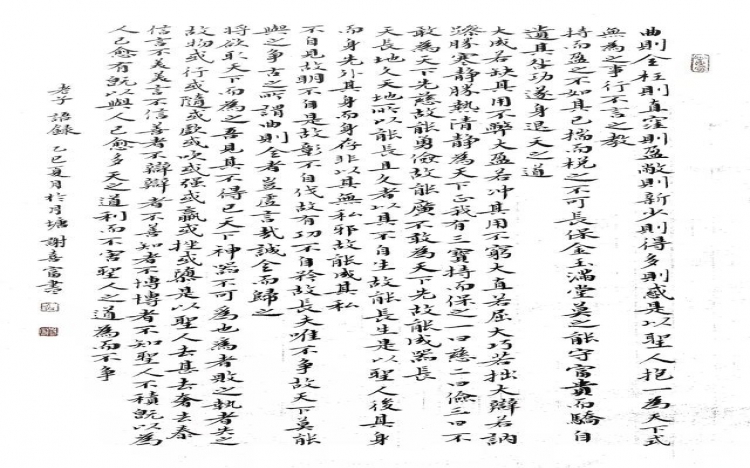 曲則全枉則直窪則盈敝則新少則得多則惑是以聖人抱一為天下式
無為之事行不言之教
持而盈之不如其已揣而梲之不可長保金玉滿堂莫之能守富貴而驕自
遺其咎功遂身退天之道
大成若缺其用不弊大盈若冲其用不窮大直若屈大巧若拙大辯若訥
躁勝寒靜勝熱清靜為天下正我有三寶持而保之一曰慈二曰儉三曰不
敢為天下先慈故能勇儉故能廣不敢為天下先故能成器長
天長地久天地所以能長且久者以其不自生故能長生是以聖人後其身
而身先外其身而身存非以其無私邪故能成其私
不自見故明不自是故彰不自伐故有功不自矜故長夫唯不爭故天下莫能
與之爭古之所謂曲則全者豈虛言哉誠全而歸之
將欲取天下而為之吾見其不得已天下神器不可為也為者敗之執者失之
故物或行或隨或歔或吹或强或羸或挫或隳是以聖人去甚去奢去泰
信言不美美言不信善者不辯辯者不善知者不博博者不知聖人不積既以為
人己愈有既以與人己愈多天之道利而不害聖人之道為而不爭
老子語錄 乙巳夏月於月塘謝喜富書